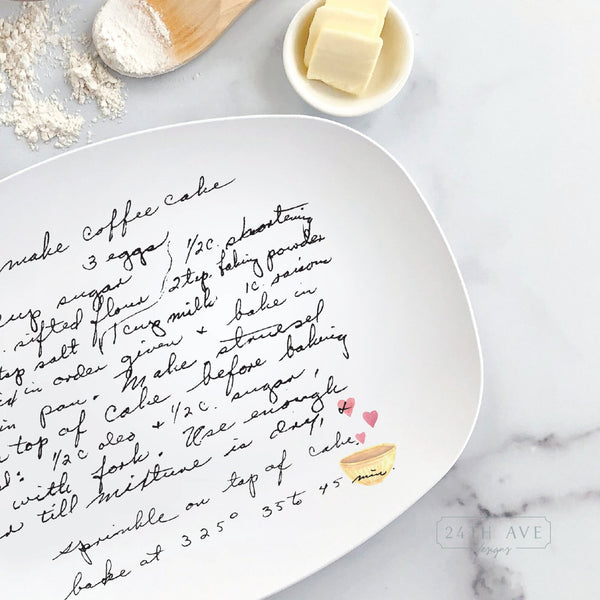 make coffee cake
3 eggs 1/2 c. shortening
cup sugar 2 tsp. baking powder
sifted flour 1 cup milk 1 c. raisins
tsp salt
in order given & bake in
in pan. Make struesel
top of cake before baking
1/2 c oleo & 1/2 c. sugar,
with fork. Use enough
till mixture is dry, &
sprinkle on top of cake.
bake at 325° 35 to 45 min.
24TH AVE
designs